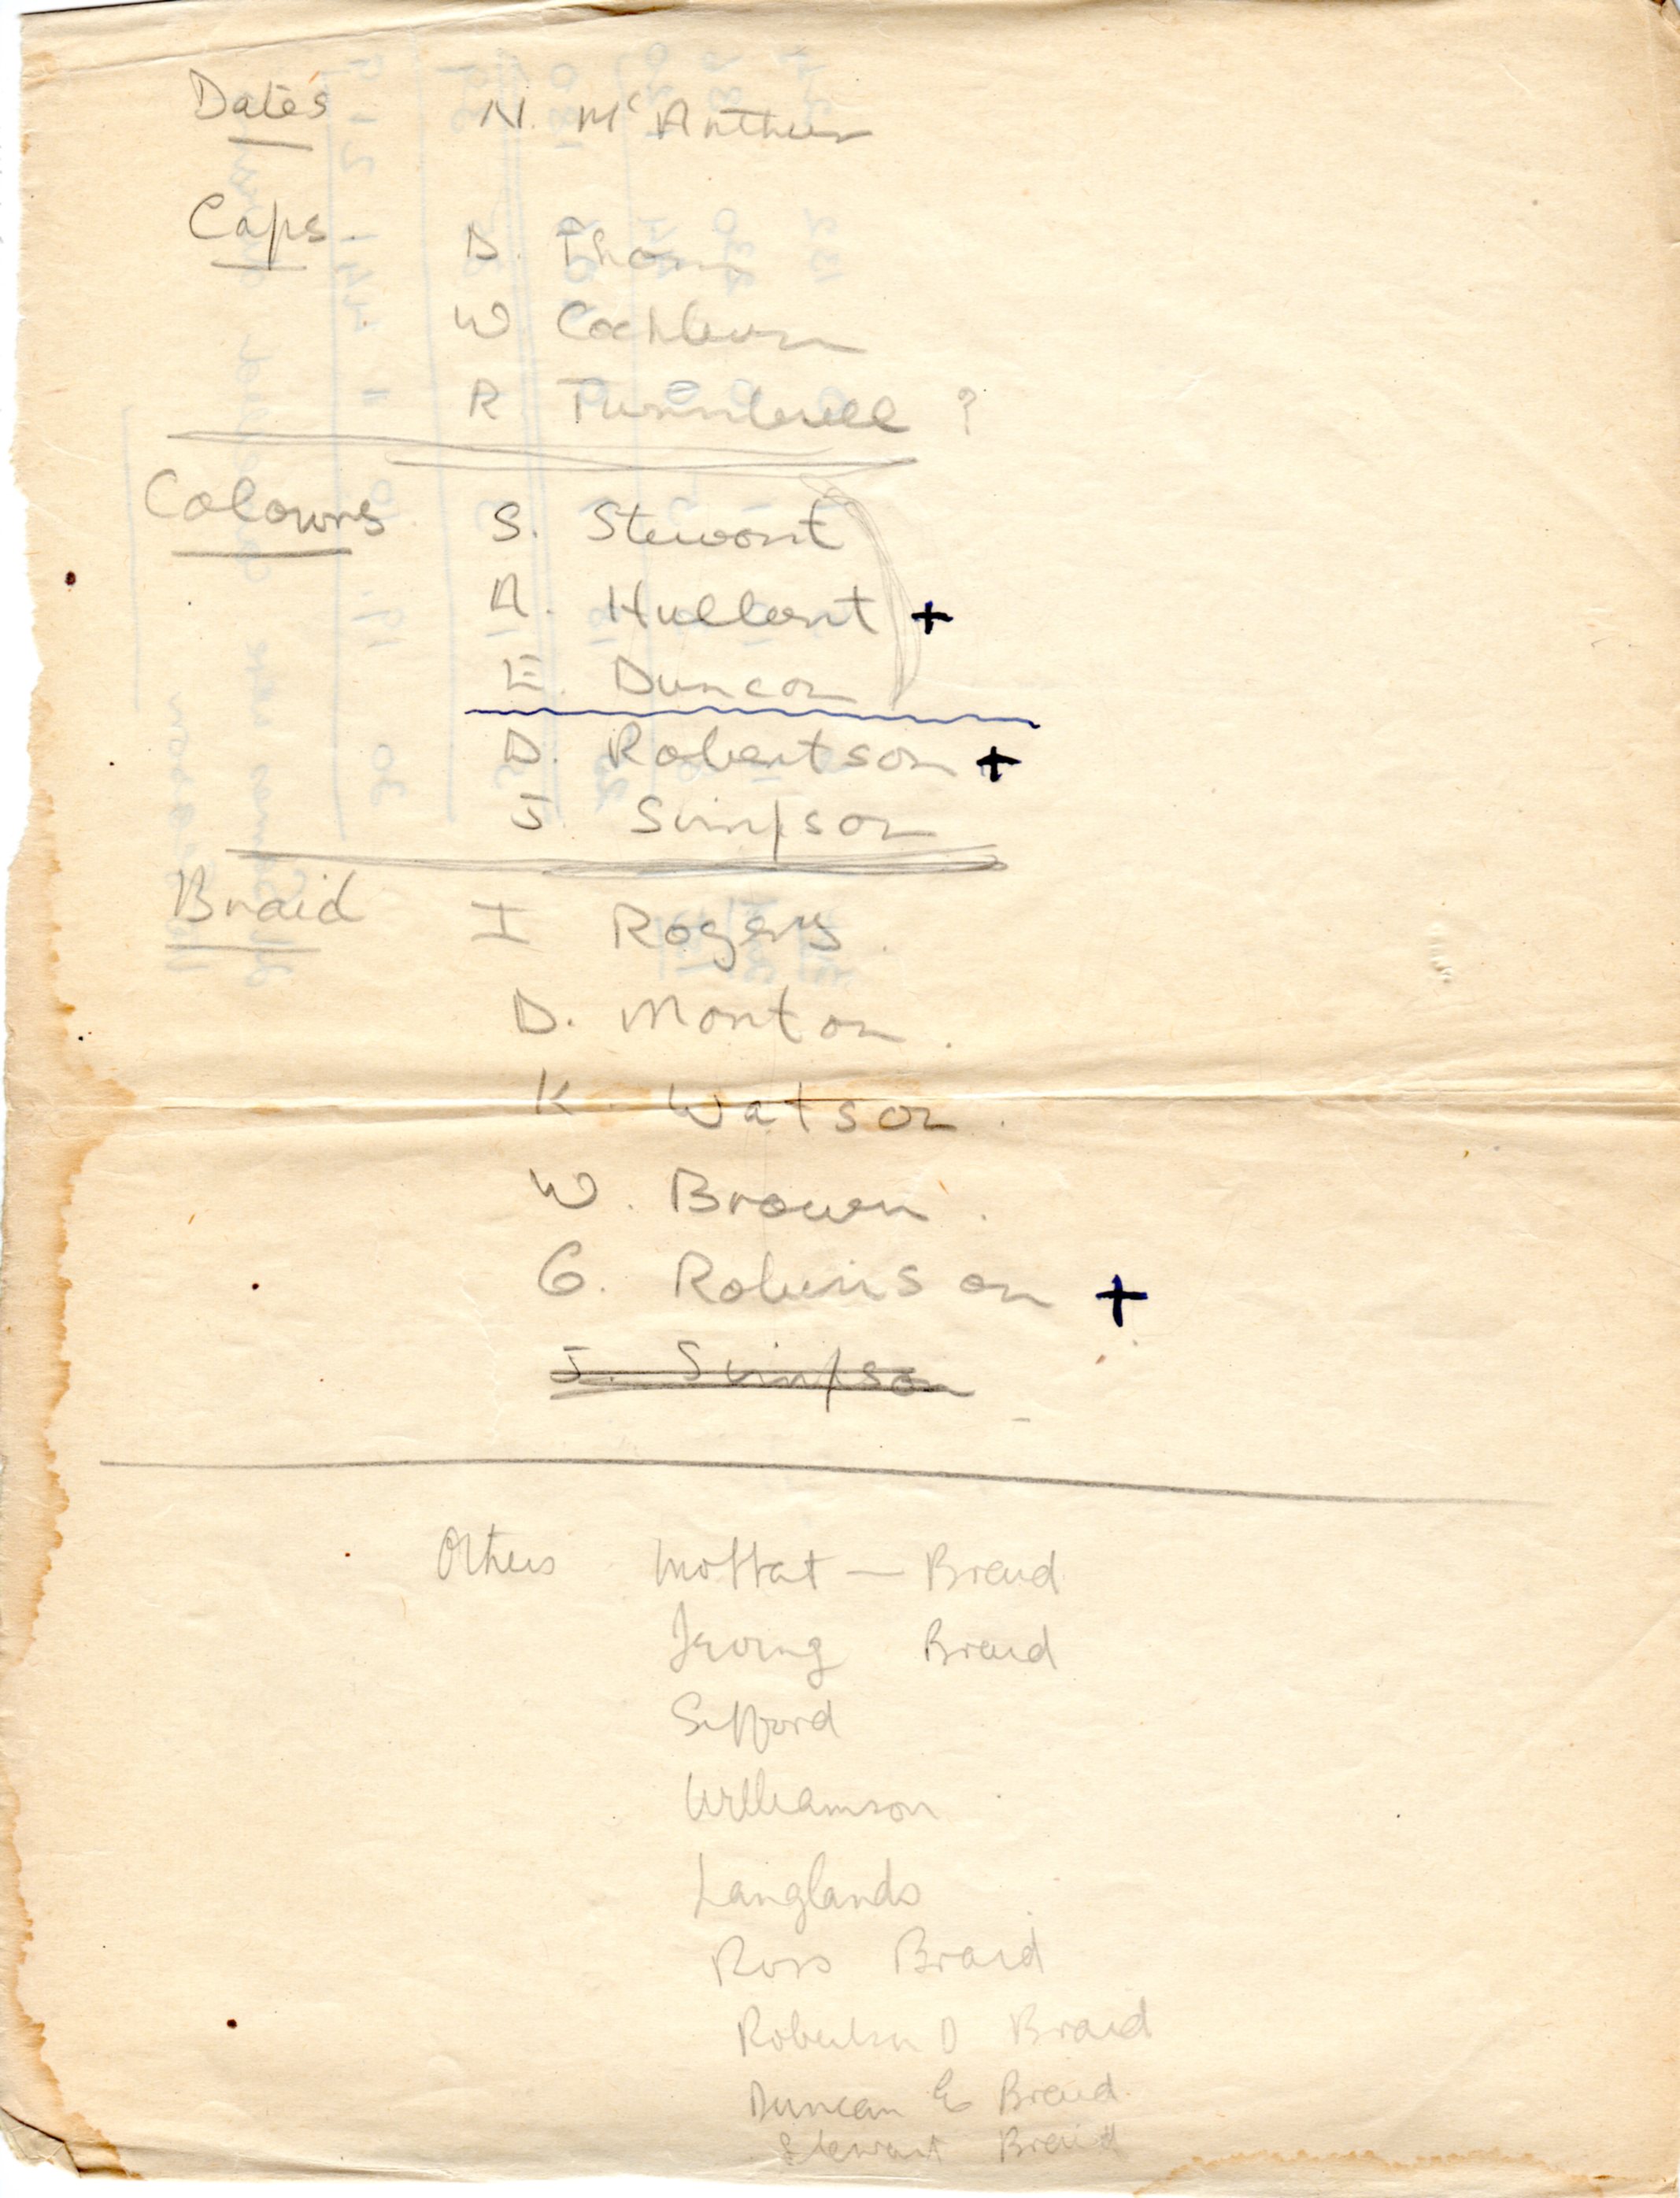 Dates N. McArthur
Caps. D. Thom
W Cockburn
R Turnbull ?
Colours S. Stewart
A. Hullart +
E. Duncan
D. Robertson +
J. Simpson
Braid I Rogers.
D. Morton.
K. Watson.
W. Brown.
G. Robinson +
J. Simpson
Others Moffat — Braid
Irving Braid
Sifford
Williamson
Langlands
Ross Braid
Robertson D Braid
Duncan E Braid.
Stewart Braid